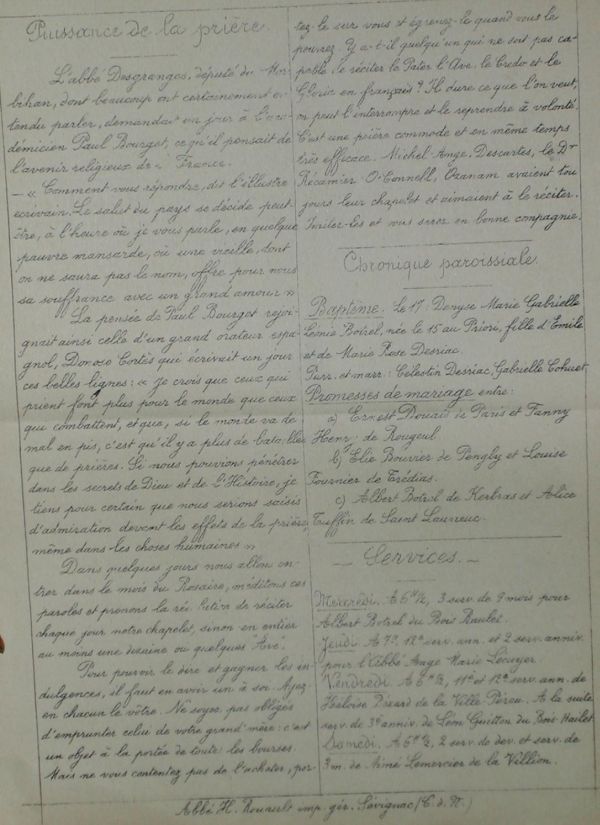 Puissance de la prière.
L'abbé Desgranges, député du Mor-
bihan, dont beaucoup ont certainement en-
tendu parler, demandait un jour à l'aca-
démicien Paul Bourget, ce qu'il pensait de
l'avenir religieux de la France.
— « Comment vous répondre, dit l'illustre
écrivain. Le salut du pays se décide peut-
être, à l'heure où je vous parle, en quelque
pauvre mansarde, où une vieille, dont
on ne saura pas le nom, offre pour nous
sa souffrance avec un grand amour »
La pensée de Paul Bourget rejoi-
gnait ainsi celle d'un grand orateur espa-
gnol, Donoso Cortès qui écrivait un jour
ces belles lignes : « Je crois que ceux qui
prient font plus pour le monde que ceux
qui combattent, et que, si le monde va de
mal en pis, c'est qu'il y a plus de batailles
que de prières. Si nous pouvions pénétrer
dans les secrets de Dieu et de l'Histoire, je
tiens pour certain que nous serions saisis
d'admiration devant les effets de la prière,
même dans les choses humaines »
Dans quelques jours nous allons en-
trer dans le mois du Rosaire, méditons ces
paroles et prenons la résolution de réciter
chaque jour notre chapelet, sinon en entier
au moins une dizaine ou quelques "Ave".
Pour pouvoir le dire et gagner les in-
dulgences, il faut en avoir un à soi. Ayez
en chacun le vôtre. Ne soyez pas obligés
d'emprunter celui de votre grand'mère : c'est
un objet à la portée de toutes les bourses.
Mais ne vous contentez pas de l'acheter, por-
tez-le sur vous et égrenez-le quand vous le
pouvez. Y a-t-il quelqu'un qui ne soit pas ca-
pable de réciter le Pater l'Ave. le Credo et le
Gloria en français ? Il dure ce que l'on veut,
on peut l'interrompre et le reprendre à volonté.
C'est une prière commode et en même temps
très efficace. Michel-Ange, Descartes, le Dr
Récamier O'Connell, Ozanam avaient tou
jours leur chapelet et aimaient à le réciter.
Imitez-les et vous serez en bonne compagnie.
Chronique paroissiale
Baptême. Le 17: Denyse Marie Gabrielle
Léonie Botrel, née le 15 au Prioré, fille d'Emile
et de Marie Rose Desriac.
Parr. et marr. : Célestin Desriac, Gabrielle Cohuet
Promesses de mariage entre:
a) Ernest Douair de Paris et Fanny
Henry de Rougeul
b) Elie Bouvier de Penguy et Louise
Fournier de Trédias.
c) Albert Botrel de Kerbras et Alice
Tuffin de Saint Launeuc.
— Services. —
Mercredi. A 6h ½, 3 serv. de 9 mois pour
Albert Botrel du Bois Raulet.
Jeudi. A 7h, 12e serv. ann. et 2 serv. anniv.
pour l'Abbé Ange Marie Lécuyer.
Vendredi. A 6h ½, 11e et 12e serv. ann. de
Héloïse Diéard de la Ville Pérou. A la suite
serv. de 3e anniv. de Léon Guitton du Bois Hailet
Samedi. A 6h ½, 2 serv. de dev. et serv. de
3 m. de Aimé Lemercier de la Villion.
Abbé H. Rouault imp. gér. Sévignac (C. d. N.)